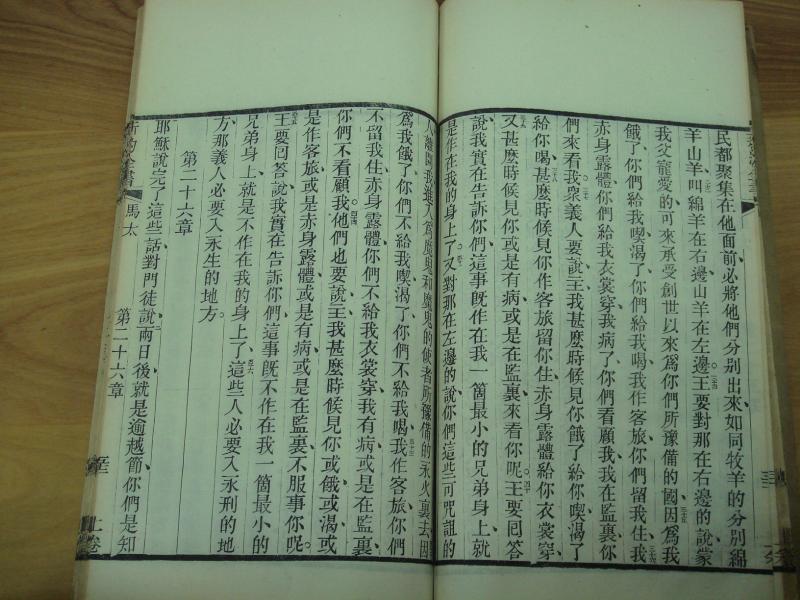 民都聚集在他面前、必將他們分別出來、如同牧羊的分別綿
羊山羊、叫綿羊在右邊、山羊在左邊。王要對那在右邊的說、蒙
我父寵愛的、可來承受創世以來爲你們所豫備的國、因爲我
餓了、你們給我喫、渴了、你們給我喝、我作客旅、你們留我住、
赤身露體、你們給我衣裳穿、我病了、你們看顧我、我在監裏、你
們來看我。衆義人要說、王、我甚麼時候見你餓了給你喫、渴了
給你喝、甚麼時候見你作客旅留你住、赤身露體給你衣裳穿、
又甚麼時候見你或是有病、或是在監裏、來看你呢。王要囘答
說、我實在告訴你們、這事旣作在我一箇最小的兄弟身上、就
是作在我的身上了。又對那在左邊的說、你們這些可咒詛的
人、離開我、進入爲魔鬼和魔鬼的使者所豫備的永火裏去、因
爲我餓了、你們不給我喫、渴了、你們不給我喝、我作客旅、你們
不留我住、赤身露體、你們不給我衣裳穿、我有病、或是在監裏、
你們不看顧我。他們也要說、王、我甚麼時候見你或餓、或渴、或
是作客旅、或是赤身露體、或是有病、或是在監裏、不服事你呢。
王要囘答說、我實在告訴你們、這事旣不作在我一箇最小的
兄弟身上、就是不作在我的身上了。這些人必要入永刑的地
方、那義人必要入永生的地方。
第二十六章
耶穌說完了這些話、對門徒說、兩日後就是逾越節、你們是知
新約全書
馬太
第二十六章
上卷